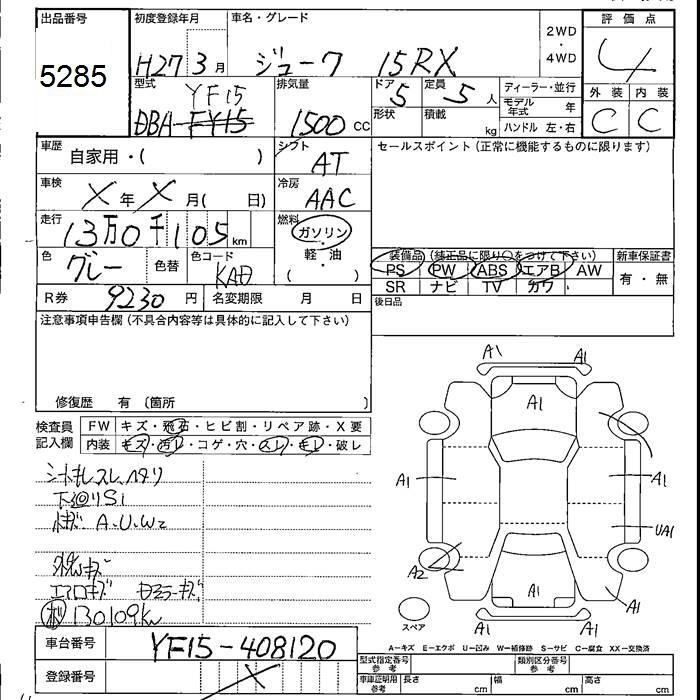 出品番号 初度登録年月 車名・グレード 2WD・4WD 評価点
5285 H27 3月 ジューク 15RX 4
型式 YF15 排気量 ドア 5 定員 5人 ディーラー・並行 外装 内装
DBA-FY15 1500cc 形状 積載 kg モデル年式 年 C C
ハンドル 左・右
車歴 自家用・( ) シフト AT セールスポイント(正常に機能するものに限ります)
車検 X年X月( 日) 冷房 AAC
走行 13万0千105km 燃料 ガソリン・軽油( )
色 グレー 色替 色コード KAD 装備品(純正品に限り○をつけて下さい) 新車保証書
PS PW ABS エアB AW 有・無
SR ナビ TV カワ
R券 9230円 名変期限 月 日 後日品
注意事項申告欄(不具合内容等は具体的に記入して下さい)
修復歴 有〔箇所 〕
検査員記入欄 FW キズ・飛石・ヒビ割・リペア跡・X要
内装 キズ・汚レ・コゲ・穴・スレ・キレ・破レ
シートキレ スレ ヘタリ
下回りS1
キズ A.U.W2
エアロキズ ドアミラーキズ
130109km
A1 A1
A1
A1 A1
UA1
A2
A1 A1
スペア
車台番号 YF15-408120
A-キズ E-エクボ U-凹み W-補修跡 S-サビ C-腐食 XX-交換済
登録番号 X
型式指定番号 参考 類別区分番号 参考
車庫証明用 参考 長さ cm 幅 cm 高さ cm